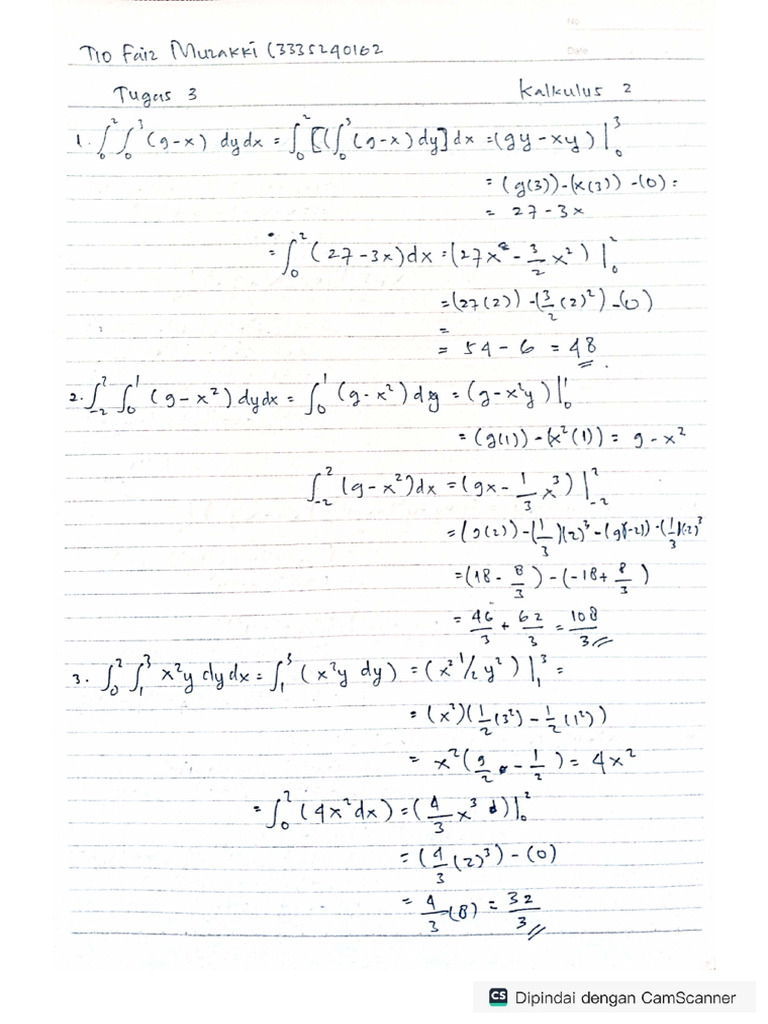 No
Date
Tio Faiz Muzakki (3335240162
Tugas 3 Kalkulus 2
1. ∫₀² ∫₀³ (9-x) dy dx = ∫₀² [(∫₀³ (9-x) dy] dx = (9y - xy) |₀³
= (9(3)) - (x(3)) - (0) =
= 27 - 3x
= ∫₀² (27 - 3x) dx = (27x - 3/2 x²) |₀²
= (27(2)) - (3/2 (2)²) - (0)
=
= 54 - 6 = 48
2. ∫₋₂² ∫₀¹ (9 - x²) dy dx = ∫₀¹ (9 - x²) dy = (9 - x²y) |₀¹
= (9(1)) - (x²(1)) = 9 - x²
∫₋₂² (9 - x²) dx = (9x - 1/3 x³) |₋₂²
= (9(2)) - (1/3)(2)³ - (9(-2)) - (1/3)(2)³
= (18 - 8/3) - (-18 + 8/3)
= 46/3 + 62/3 = 108/3
3. ∫₀² ∫₁³ x²y dy dx = ∫₁³ (x²y dy) = (x² 1/2 y²) |₁³ =
= (x²)(1/2 (3²) - 1/2 (1²))
= x² (9/2 - 1/2) = 4x²
= ∫₀² (4x² dx) = (4/3 x³) |₀²
= (4/3 (2)³) - (0)
= 4/3 (8) = 32/3
CS Dipindai dengan CamScanner